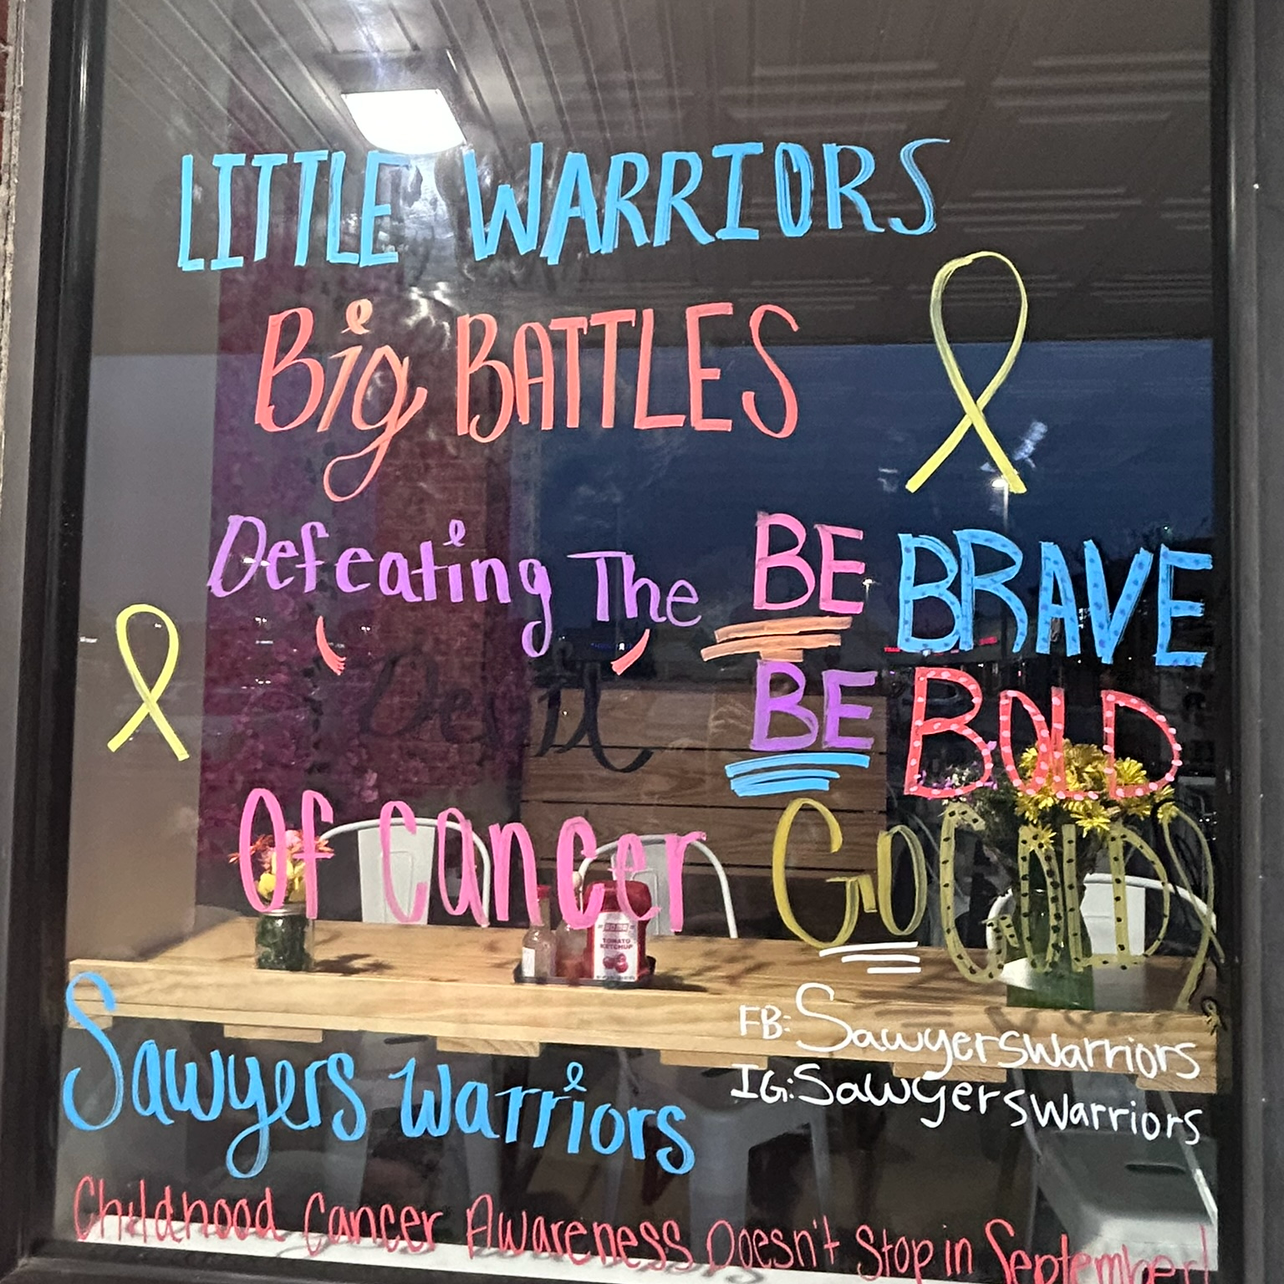 LITTLE WARRIORS
Big BATTLES
Defeating The
Devil
Of Cancer
BE BRAVE
BE BOLD
GO GOLD
FB: Sawyerswarriors
IG: Sawyerswarriors
Sawyers Warriors
Childhood Cancer Awareness Doesn't Stop in September!
TOMATO
KETCHUP